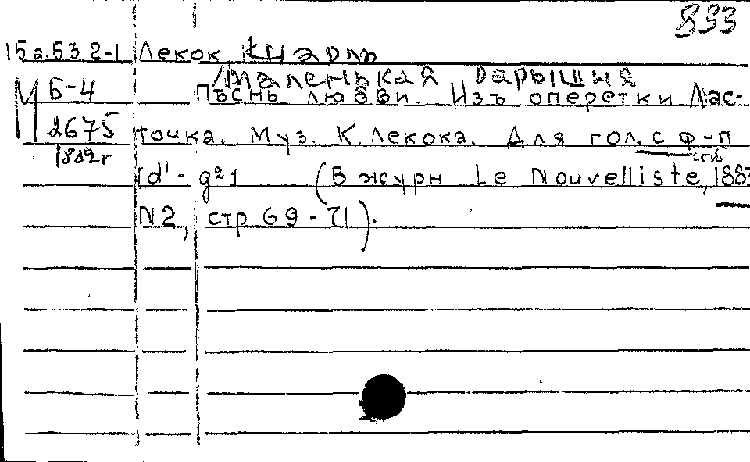 893
15а.53.2-1 Лекок, Шарль
/Маленькая барышня
М Б-4 Пѣснь любви. Изъ оперетки Лас-
2675 точка. Муз. К. Лекока. Для гол. с ф-п
1882г
(d¹ - g²) (В журн Le Nouvelliste, 188
N2, стр 69-71).